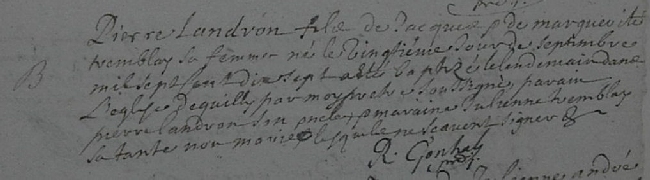 B
Pierre Landron fils de Jacques et de marguerite
tremblay sa femme né le vingtieme Jour de septembre
mil sept cent dix sept a esté baptizé le lendemain dans
l'eglise de quilly par moy pretre soussigné parain
pierre landron son oncle et maraine Julienne tremblay
sa tante non mariez lesquels ne scavent signer
R. Gonhay
Julienne andré